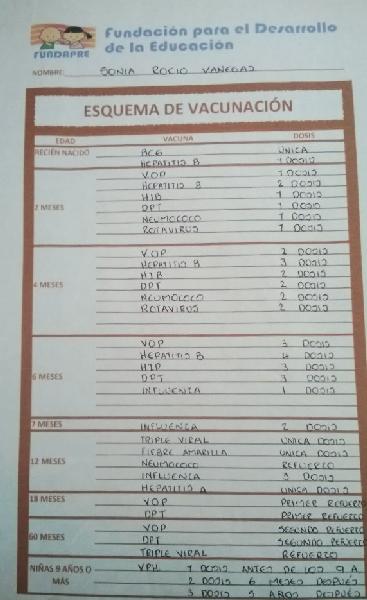 Fundación para el Desarrollo
de la Educación
FUNDAPRE
NOMBRE: SONIA ROCIO VANEGAS
ESQUEMA DE VACUNACIÓN
EDAD VACUNA DOSIS
RECIÉN NACIDO BCG UNICA
HEPATITIS B 1 DOSIS
2 MESES
VOP 1 DOSIS
HEPATITIS B 2 DOSIS
HIB 1 DOSIS
DPT 1 DOSIS
NEUMOCOCO 1 DOSIS
ROTAVIRUS 1 DOSIS
4 MESES
VOP 2 DOSIS
HEPATITIS B 3 DOSIS
HIB 2 DOSIS
DPT 2 DOSIS
NEUMOCOCO 2 DOSIS
ROTAVIRUS 2 DOSIS
6 MESES
VOP 3 DOSIS
HEPATITIS B 4 DOSIS
HIB 3 DOSIS
DPT 3 DOSIS
INFLUENZA 1 DOSIS
7 MESES INFLUENZA 2 DOSIS
12 MESES
TRIPLE VIRAL UNICA DOSIS
FIEBRE AMARILLA UNICA DOSIS
NEUMOCOCO REFUERZO
INFLUENZA 3 DOSIS
HEPATITIS A UNICA DOSIS
18 MESES
VOP PRIMER REFUERZO
DPT PRIMER REFUERZO
60 MESES
VOP SEGUNDO REFUERZO
DPT SEGUNDO REFUERZO
TRIPLE VIRAL REFUERZO
NIÑAS 9 AÑOS O
MÁS
VPH 1 DOSIS ANTES DE LOS 9 A.
2 DOSIS 6 MESES DESPUÉS
3 DOSIS 5 AÑOS DESPUÉS